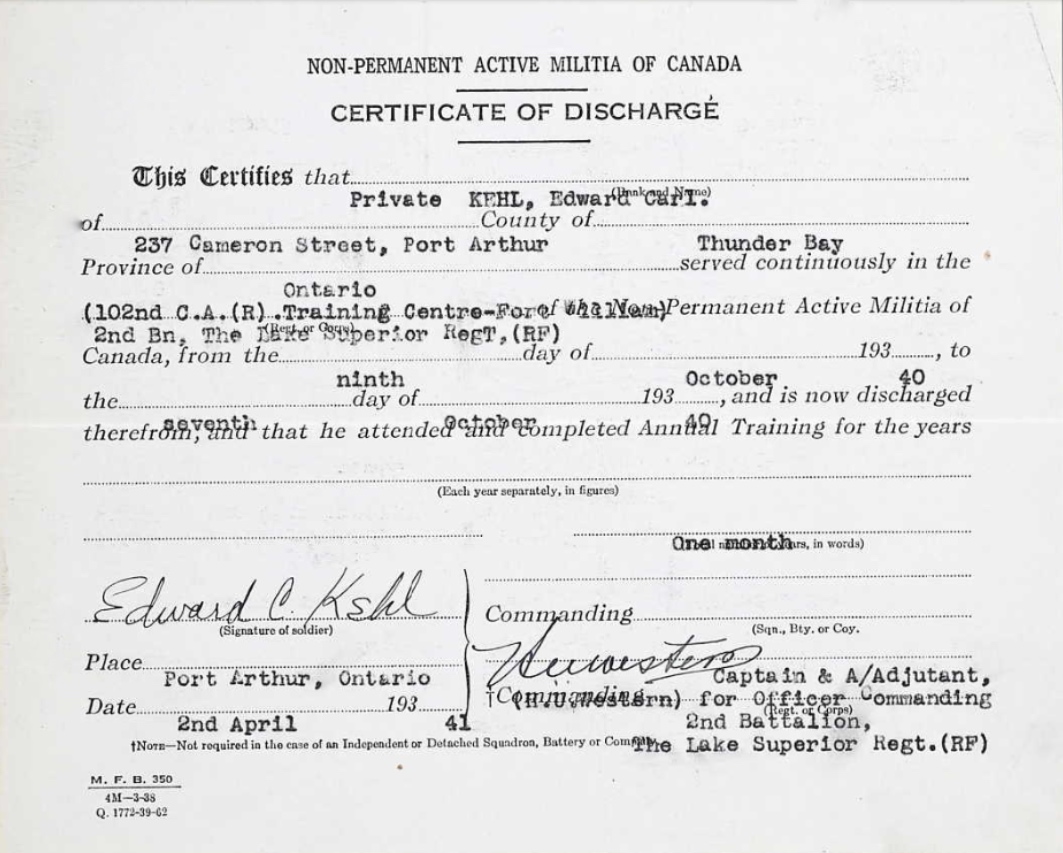 NON-PERMANENT ACTIVE MILITIA OF CANADA
CERTIFICATE OF DISCHARGE
This Certifies that
Private KEHL, Edward Carl.
(Rank and Name)
of County of
237 Cameron Street, Port Arthur Thunder Bay
Province of served continuously in the
Ontario
(102nd C.A.(R).Training Centre-Fort William) of the Non-Permanent Active Militia of
2nd Bn, The Lake Superior RegT,(RF)
(Regt. or Corps)
Canada, from the day of 193 , to
ninth October 40
the day of 193 , and is now discharged
seventh October 40
therefrom, and that he attended and completed Annual Training for the years
(Each year separately, in figures)
One month
years, in words)
Edward C. Kehl
(Signature of soldier)
Commanding
(Sqn., Bty. or Coy.
Place
Port Arthur, Ontario
Captain & A/Adjutant,
†Commanding
Western) for Officer Commanding
(Regt. or Corps)
Date 193
2nd April 41
2nd Battalion,
†NOTE—Not required in the case of an Independent or Detached Squadron, Battery or Company.
The Lake Superior Regt.(RF)
M. F. B. 350
4M—3-38
Q. 1772-39-62